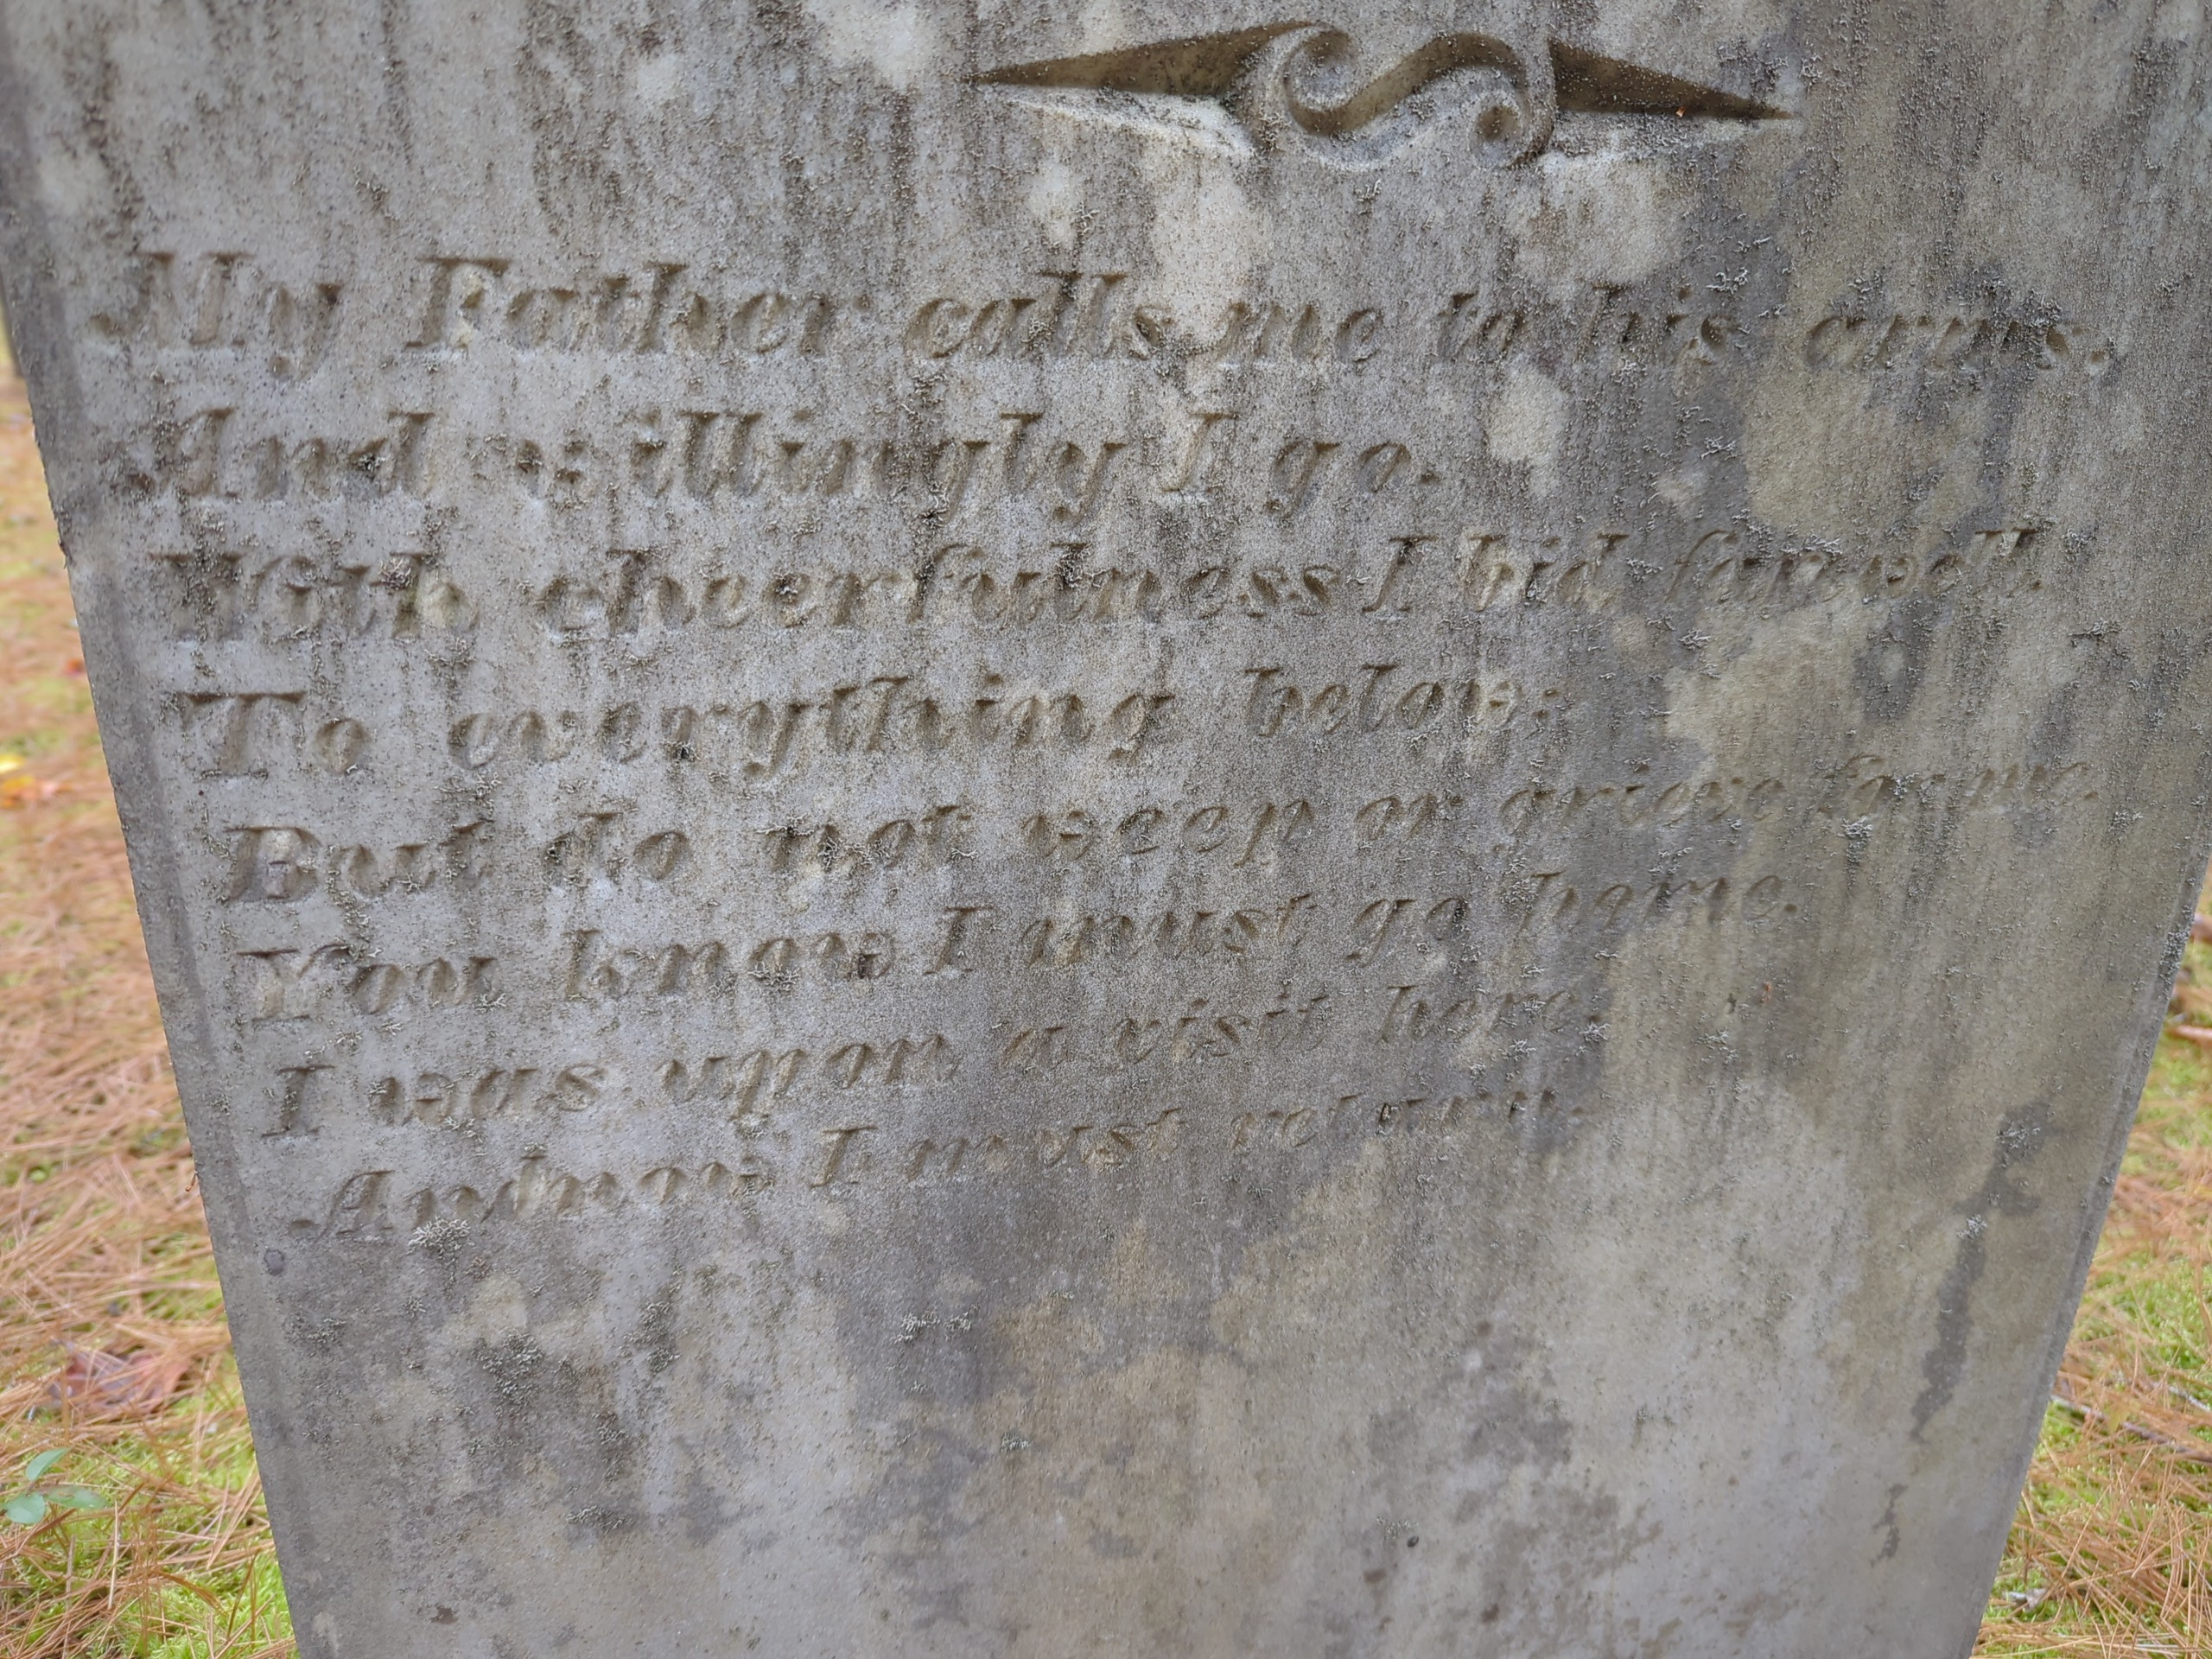 My Father calls me to his arms.
And willingly I go.
With cheerfulness I bid farewell.
To everything below:
But do not weep or grieve for me.
You know I must go home.
I was upon a visit here.
And now I must return.